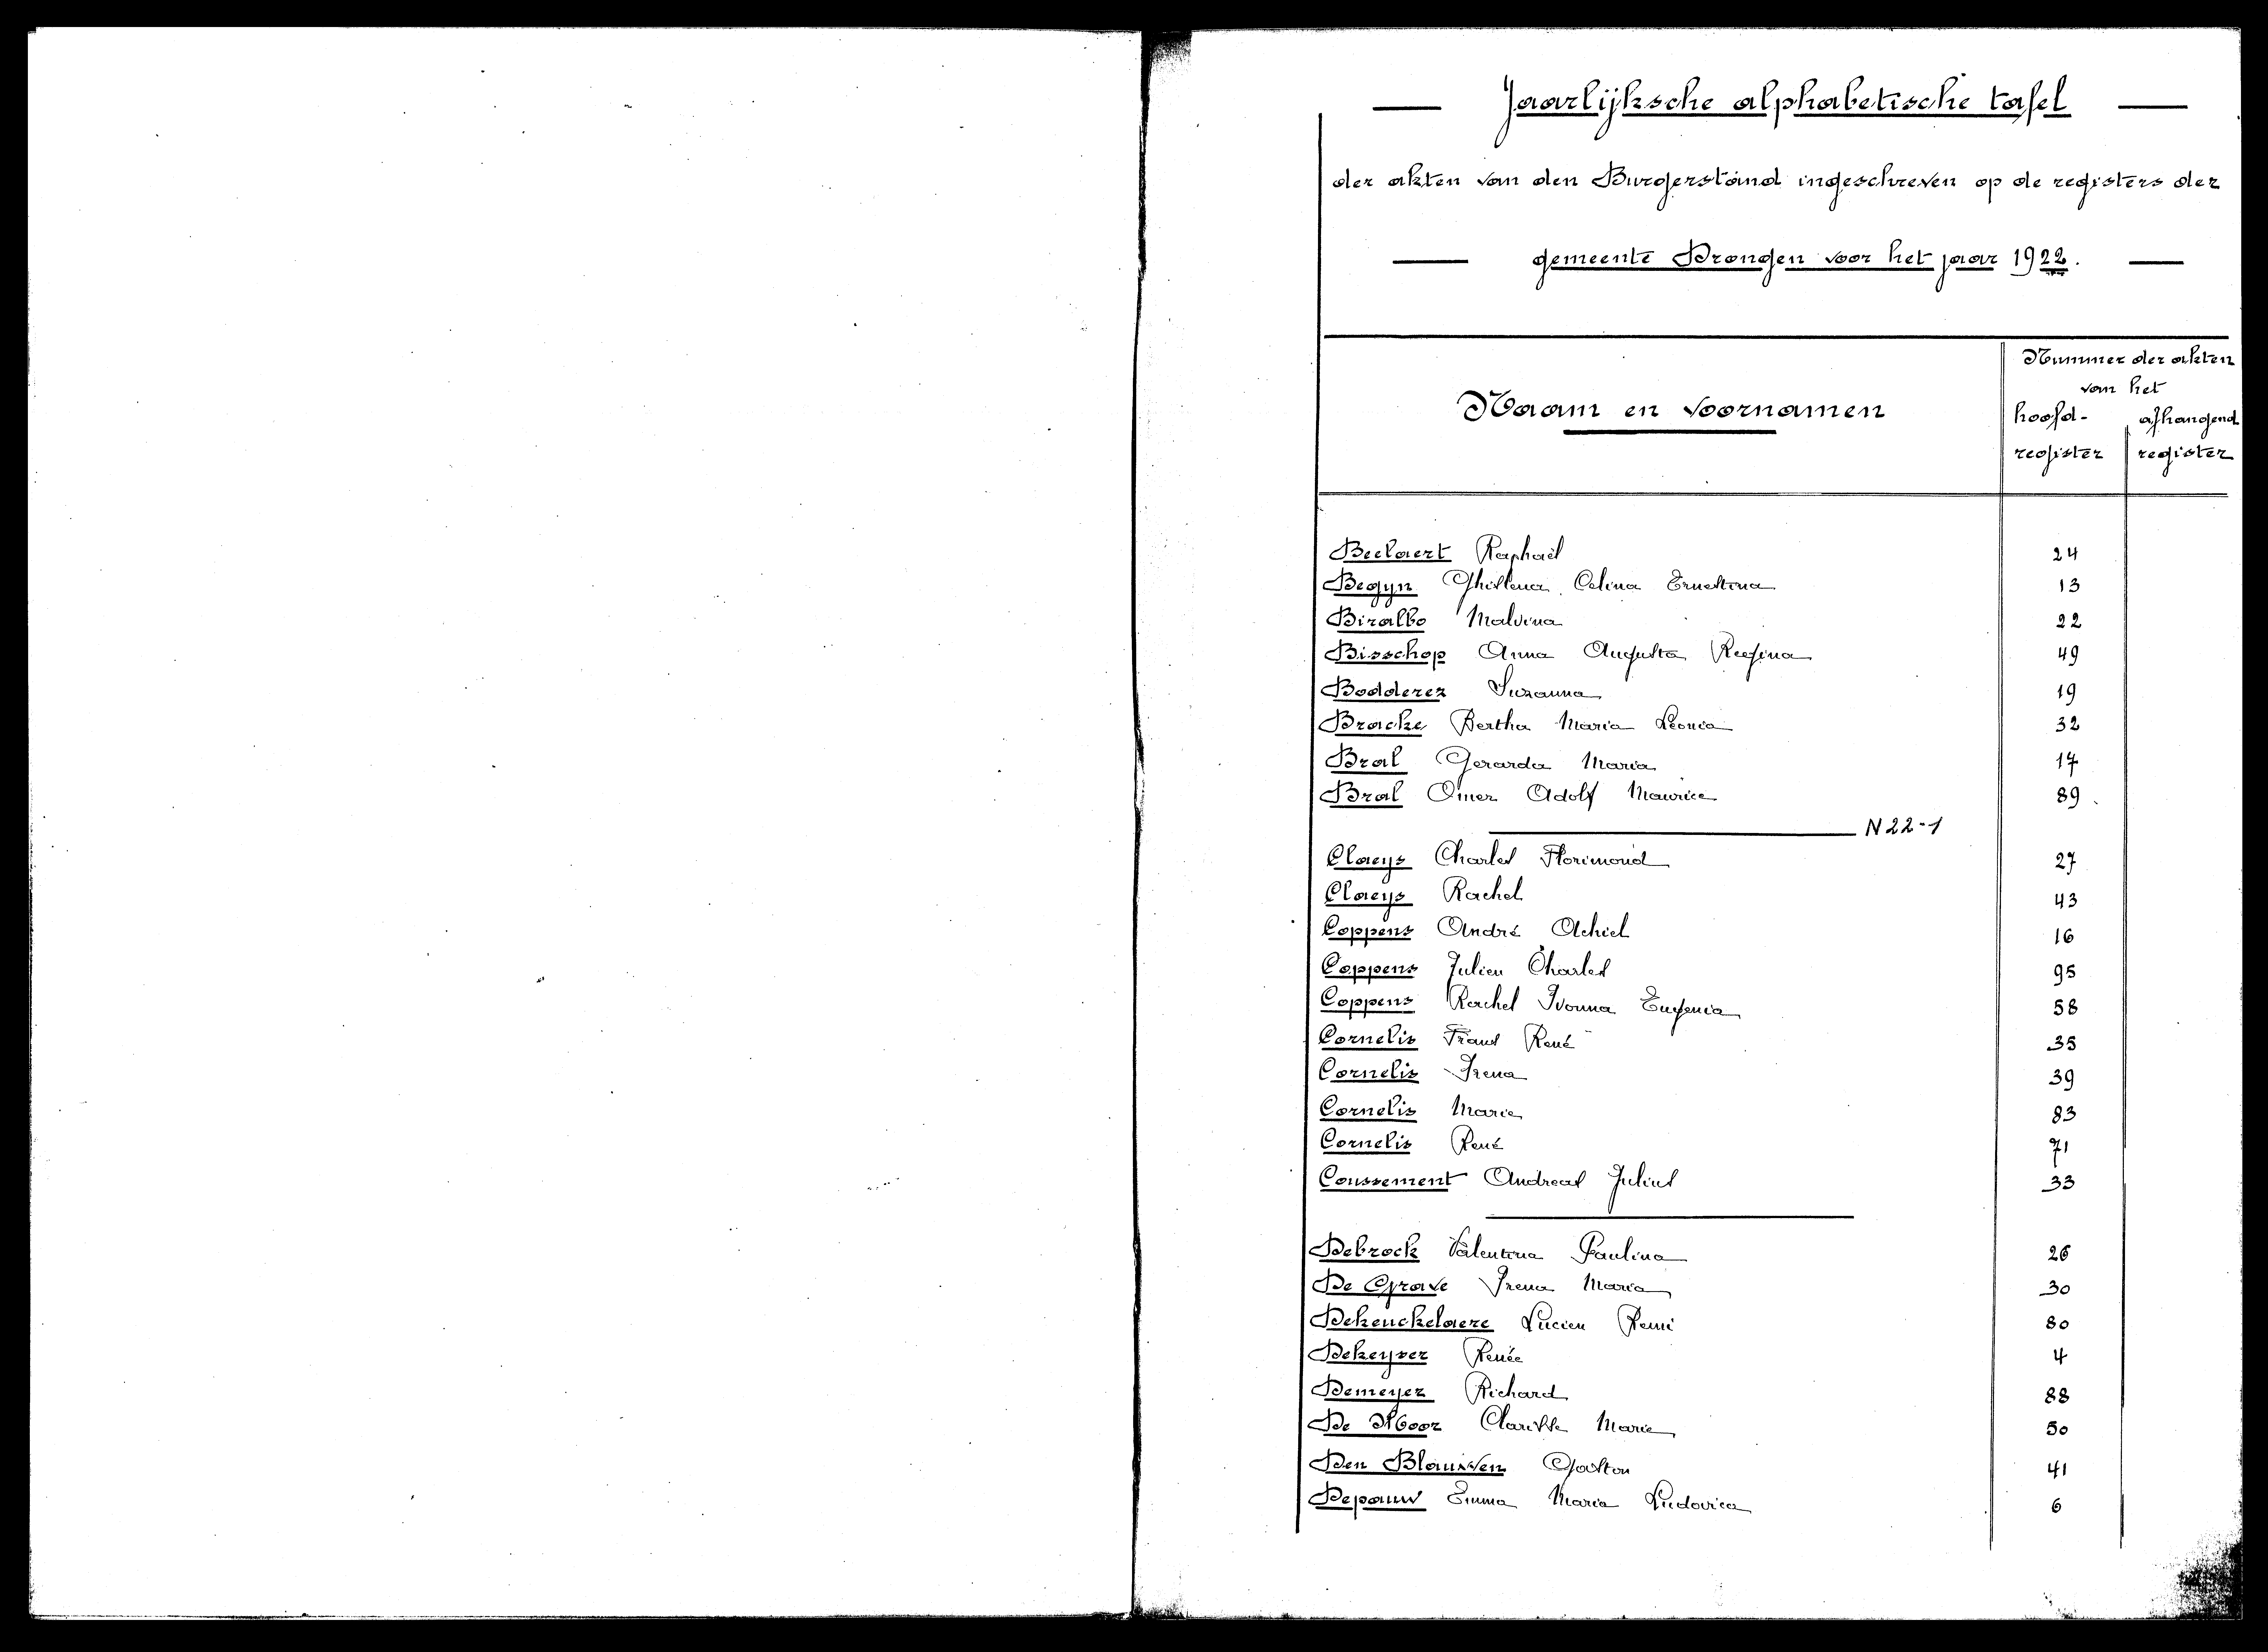 Jaarlijksche alphabetische tafel
der akten van den Burgerstand ingeschreven op de registers der
gemeente Drongen voor het jaar 1922.
Naam en voornamen
Nummer der akten
van het
hoofd- afhangend
register register
Beelaert Raphaël 24
Begyn Ghislena Celina Ernestina 13
Biralbo Malvina 22
Bisschop Anna Augusta Regina 49
Bodderez Suzanna 19
Bracke Bertha Maria Leonia 32
Bral Gerarda Maria 17
Bral Omer Adolf Maurice 89
N 22-1
Claeys Charles Florimond 27
Claeys Rachel 43
Coppens André Achiel 16
Coppens Julien Charles 95
Coppens Rachel Ivonna Eugenia 58
Cornelis Frans René 35
Cornelis Irena 39
Cornelis Marie 83
Cornelis René 71
Coussement Andreas Julius 33
Debrock Valentina Paulina 26
De Grave Irena Maria 30
Dekeuckelaere Lucien Remi 80
Dekeyser Renée 4
Demeyer Richard 88
De Moor Clarisse Marie 50
Den Blauwen Gaston 41
Depauw Emma Maria Ludovica 6